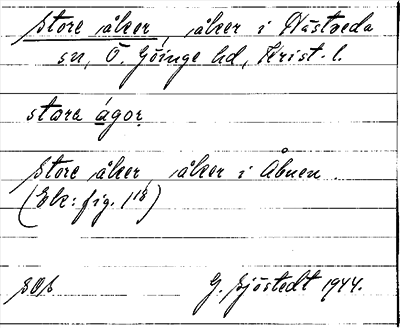 store åker, åker i Nästveda
sn, Ö. Göinge hd, Krist. l.
stara ágor.
store åker, åker i Åbuen.
(Ek: fig. 118)
SOS G. Sjöstedt 1944.